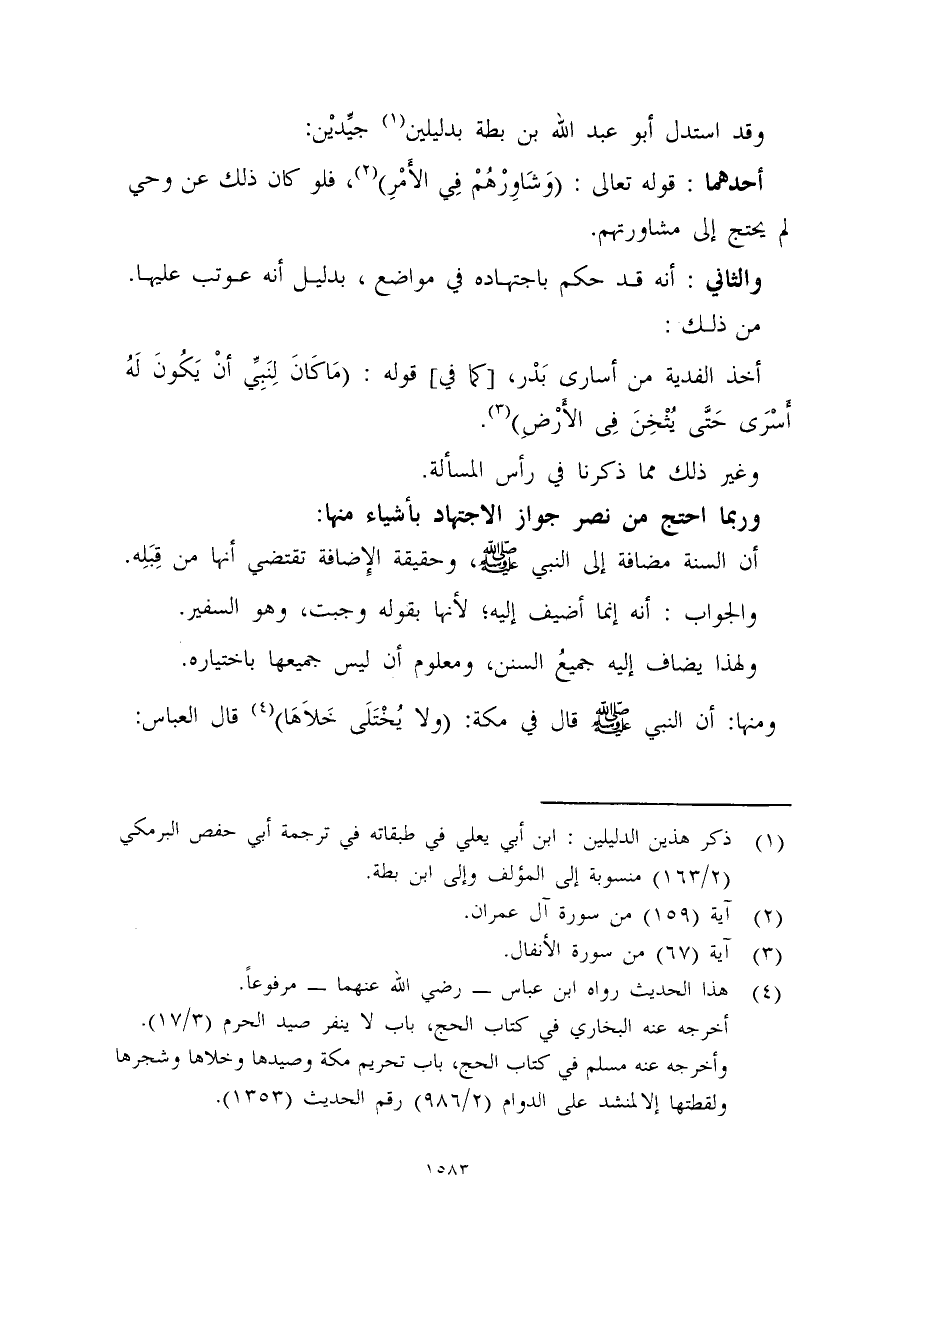 وقد استدل أبو عبد الله بن بطة بدليلين(١) جيِّديْن:
أحدهما : قوله تعالى : (وَشَاوِرْهُمْ فِي الأَمْرِ)(٢)، فلو كان ذلك عن وحي
لم يحتج إلى مشاورتهم.
والثاني : أنه قد حكم باجتهاده في مواضع ، بدليل أنه عوتب عليها.
من ذلك :
أخذ الفدية من أسارى بَدْر، [كما في] قوله : (مَاكَانَ لِنَبِيِّ أنْ يَكُونَ لَهُ
أَسْرَى حَتَّى يُثْخِنَ فِى الأَرْضِ)(٣).
وغير ذلك مما ذكرنا في رأس المسألة.
وربما احتج من نصر جواز الاجتهاد بأشياء منها:
أن السنة مضافة إلى النبي ﷺ، وحقيقة الإضافة تقتضي أنها من قِبَلِه.
والجواب : أنه إنما أضيف إليه؛ لأنها بقوله وجبت، وهو السفير.
ولهذا يضاف إليه جميعُ السنن، ومعلوم أن ليس جميعها باختياره.
ومنها: أن النبي ﷺ قال في مكة: (ولا يُخْتَلَى خَلاَهَا)(٤) قال العباس:
(١) ذكر هذين الدليلين : ابن أبي يعلي في طبقاته في ترجمة أبي حفص البرمكي
(١٦٣/٢) منسوبة إلى المؤلف وإلى ابن بطة.
(٢) آية (١٥٩) من سورة آل عمران.
(٣) آية (٦٧) من سورة الأنفال.
(٤) هذا الحديث رواه ابن عباس ــ رضي الله عنهما ــ مرفوعاً.
أخرجه عنه البخاري في كتاب الحج، باب لا ينفر صيد الحرم (١٧/٣).
وأخرجه عنه مسلم في كتاب الحج، باب تحريم مكة وصيدها وخلاها وشجرها
ولقطتها إلا لمنشد على الدوام (٩٨٦/٢) رقم الحديث (١٣٥٣).
١٥٨٣